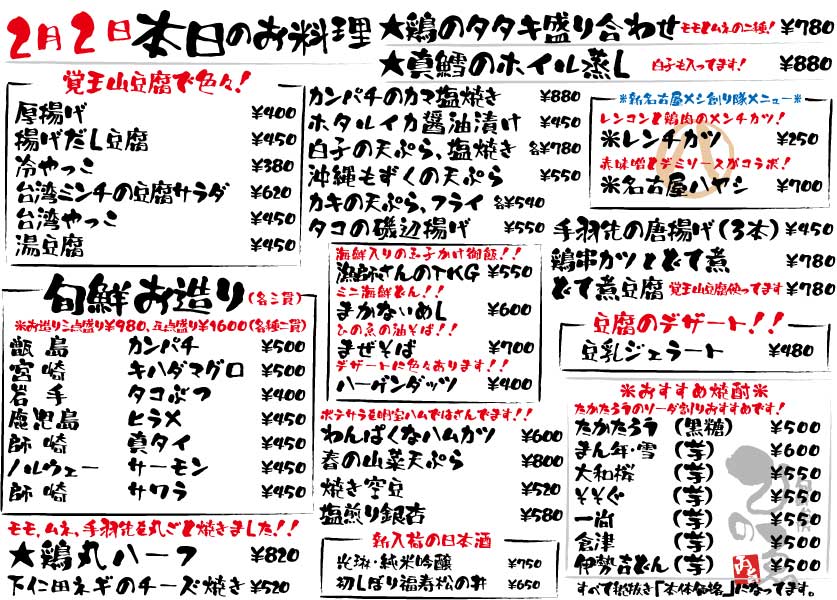 2月2日 本日のお料理
★鶏のタタキ盛り合わせ モモとムネの二種! ¥780
★真鱈のホイル蒸し 白子も入ってます! ¥880
覚王山豆腐で色々!
厚揚げ ¥400
揚げだし豆腐 ¥450
冷やっこ ¥380
台湾ミンチの豆腐サラダ ¥620
台湾やっこ ¥450
湯豆腐 ¥450
旬鮮お造り(各三貫)
※お造り三点盛り¥980、五点盛り¥1600(各種二貫)
甑島 カンパチ ¥500
宮崎 キハダマグロ ¥500
岩手 タコぶつ ¥400
鹿児島 ヒラメ ¥450
師崎 真タイ ¥450
ノルウェー サーモン ¥450
師崎 サワラ ¥450
モモ、ムネ、手羽先を丸ごと焼きました!!
★鶏丸ハーフ ¥820
下仁田ネギのチーズ焼き ¥520
カンパチのカマ塩焼き ¥880
ホタルイカ醤油漬け ¥450
白子の天ぷら、塩焼き 各¥780
沖縄もずくの天ぷら ¥550
カキの天ぷら、フライ 各¥540
タコの磯辺揚げ ¥550
海鮮入りの玉子かけ御飯!!
漁師さんのTKG ¥550
ミニ海鮮どん!!
まかないめし ¥600
ひの魚の油そば!!
まぜそば ¥700
デザートに色々あります!!
ハーゲンダッツ ¥400
ポテサラを明宝ハムではさんでます!!
わんぱくなハムカツ ¥600
春の山菜天ぷら ¥800
焼き空豆 ¥520
塩煎り銀杏 ¥580
新入荷の日本酒
純米吟醸 ¥750
初しぼり福寿松の井 ¥650
※新名古屋メシ創り隊メニュー※
レンコンと鶏肉のメンチカツ!
※レンチカツ ¥250
赤味噌とデミソースがコラボ!
※名古屋ハヤシ ¥700
手羽先の唐揚げ(3本) ¥450
鶏串カツとどて煮 ¥780
どて煮豆腐 覚王山豆腐使ってます ¥780
豆腐のデザート!!
豆乳ジェラート ¥480
※おすすめ焼酎※
たかたろうのソーダ割りおすすめです!
たかたろう (黒糖) ¥500
まん年・雪 (芋) ¥600
大和桜 (芋) ¥550
そそぐ (芋) ¥550
一尚 (芋) ¥550
倉津 (芋) ¥500
伊勢吉どん (芋) ¥500
すべて税抜き「本体価格」になってます。